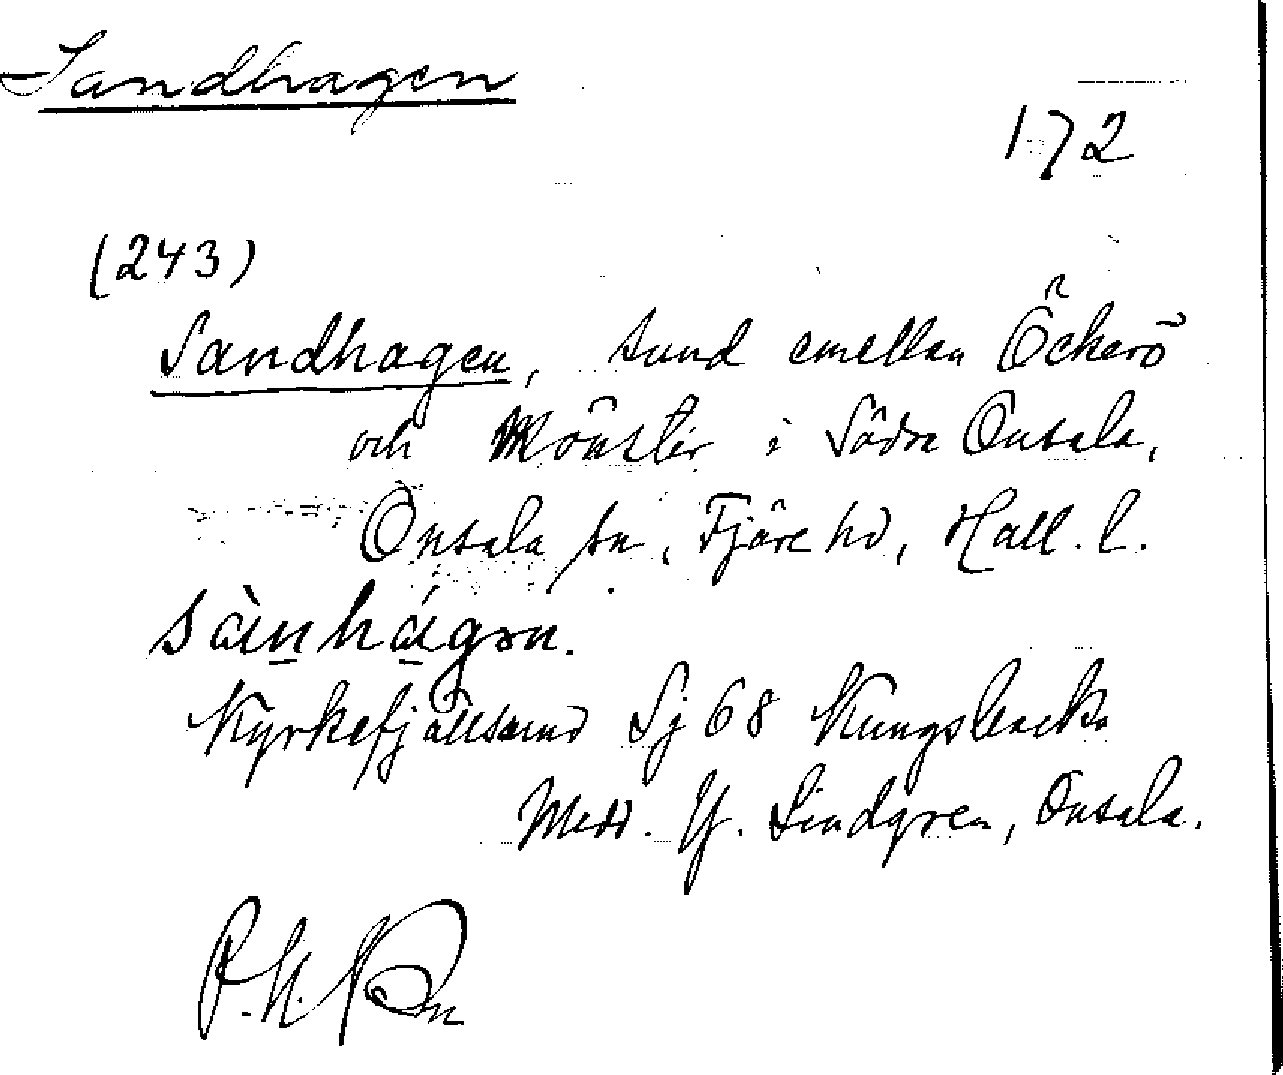 Sandhagen
172
(243)
Sandhagen, sund emellan Öckerö
och Mönster i Södra Onsala,
Onsala sn, Fjäre hd, Hall. l.
sànhágən.
Kyrkefjällsund Sj 68 Kungsbacka
Medd. Y. Lindgren, Onsala.